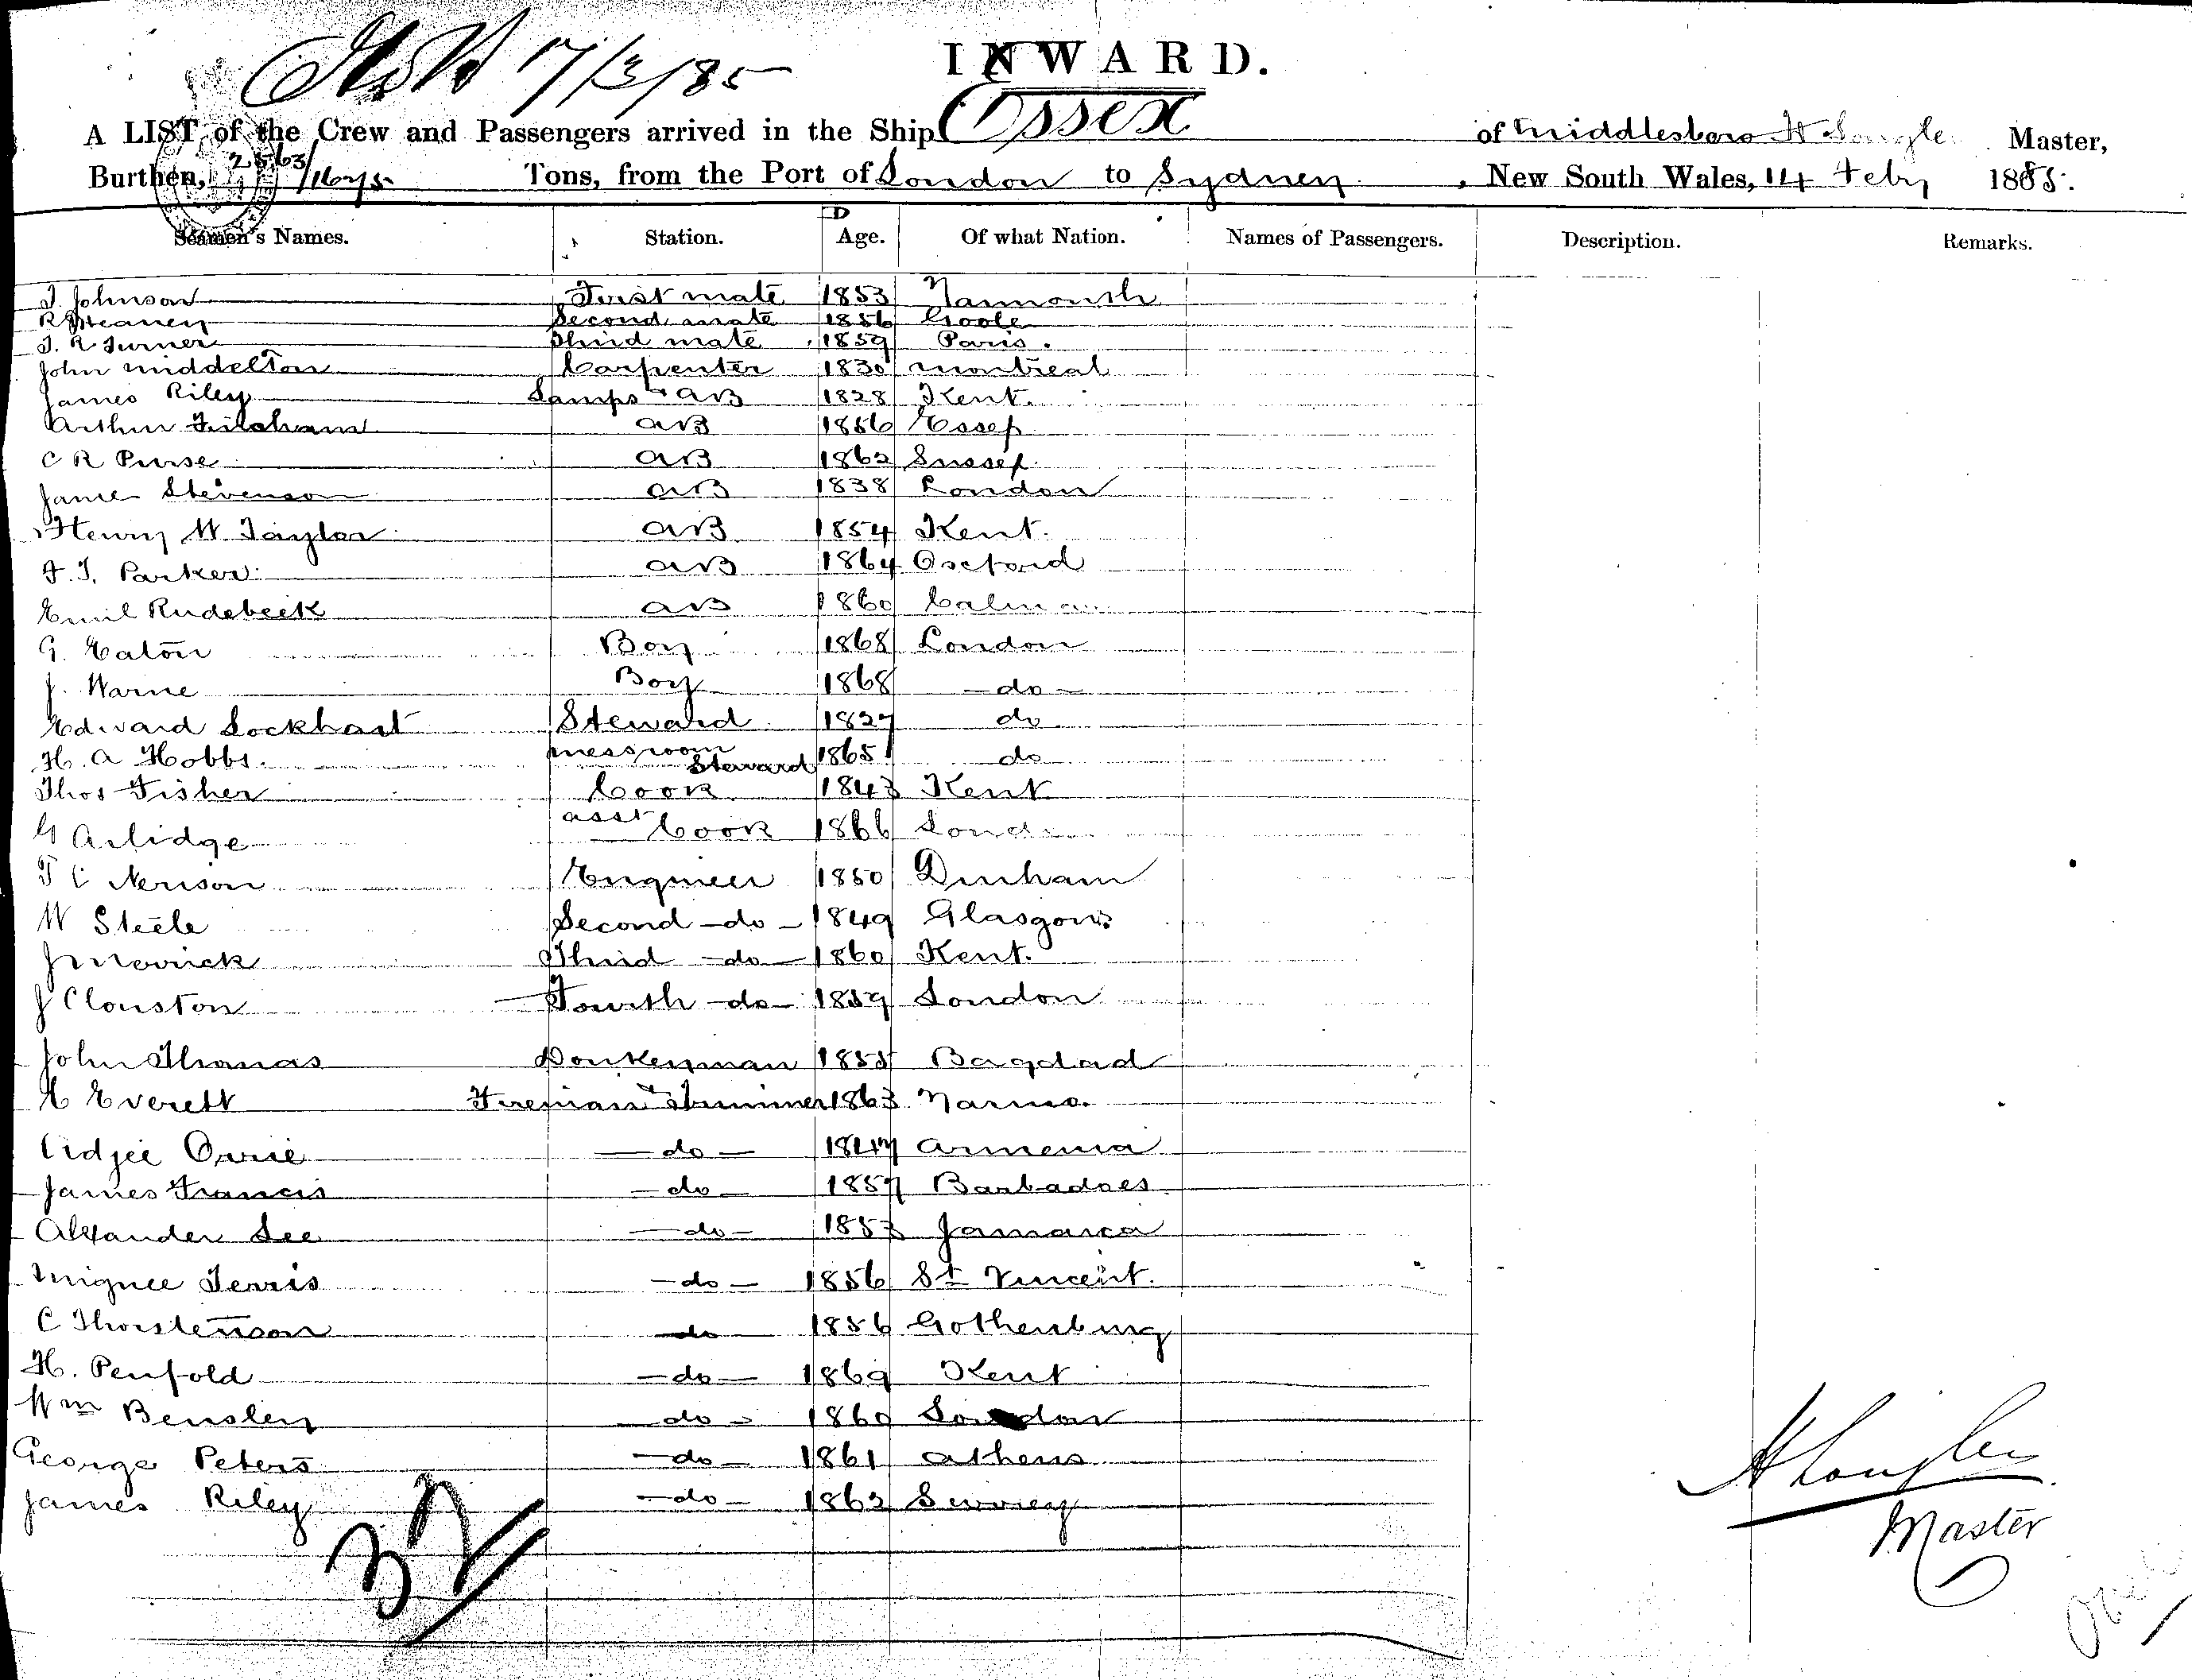 17/2/85
INWARD.
A LIST of the Crew and Passengers arrived in the Ship Essex of Middlesboro H Longley Master,
Burthen, 2563/1675 Tons, from the Port of London to Sydney, New South Wales, 14 Feby 1885.
Seamen's Names. Station. Age. Of what Nation. Names of Passengers. Description. Remarks.
J. Johnson First mate 1853 Yarmouth
Second mate 1856 Goole
J. R Turner Third mate 1859 Paris.
John Middelton Carpenter 1830 Montreal
James Riley Lamps & AB 1828 Kent.
Arthur AB 1856 Essex
C R Purse AB 1862 Sussex
James Stevenson AB 1838 London
Henry W. Taylor AB 1854 Kent.
F. J. Parker AB 1864 Oxford
Emil Rudebeck AB 1860
G. Eaton Boy 1868 London
J. Warne Boy 1868 - do -
Edward Lockhart Steward 1827 do
H. A Hobbs. messroom Steward 1865 do
Thos Fisher Cook 1843 Kent
G Arlidge asst Cook 1866
Engineer 1850 Durham
W Steele Second - do - 1849 Glasgow
Third - do - 1860 Kent.
J Clouston Fourth - do - 1859 London
John Thomas Donkeyman 1855 Bagdad
E Everett Fireman & Trimmer 1863
- do - 1847 Armenia
James Francis - do - 1857 Barbadoes
Alexander Lee - do - 1853 Jamaica
- do - 1856 St Vincent.
C Thorstenson - do - 1856 Gothenburg
H. Penfold - do - 1869 Kent
Wm Bensley - do - 1860 London
George Peters - do - 1861 Athens
James Riley - do - 1862 Surrey
32
H Longley
Master